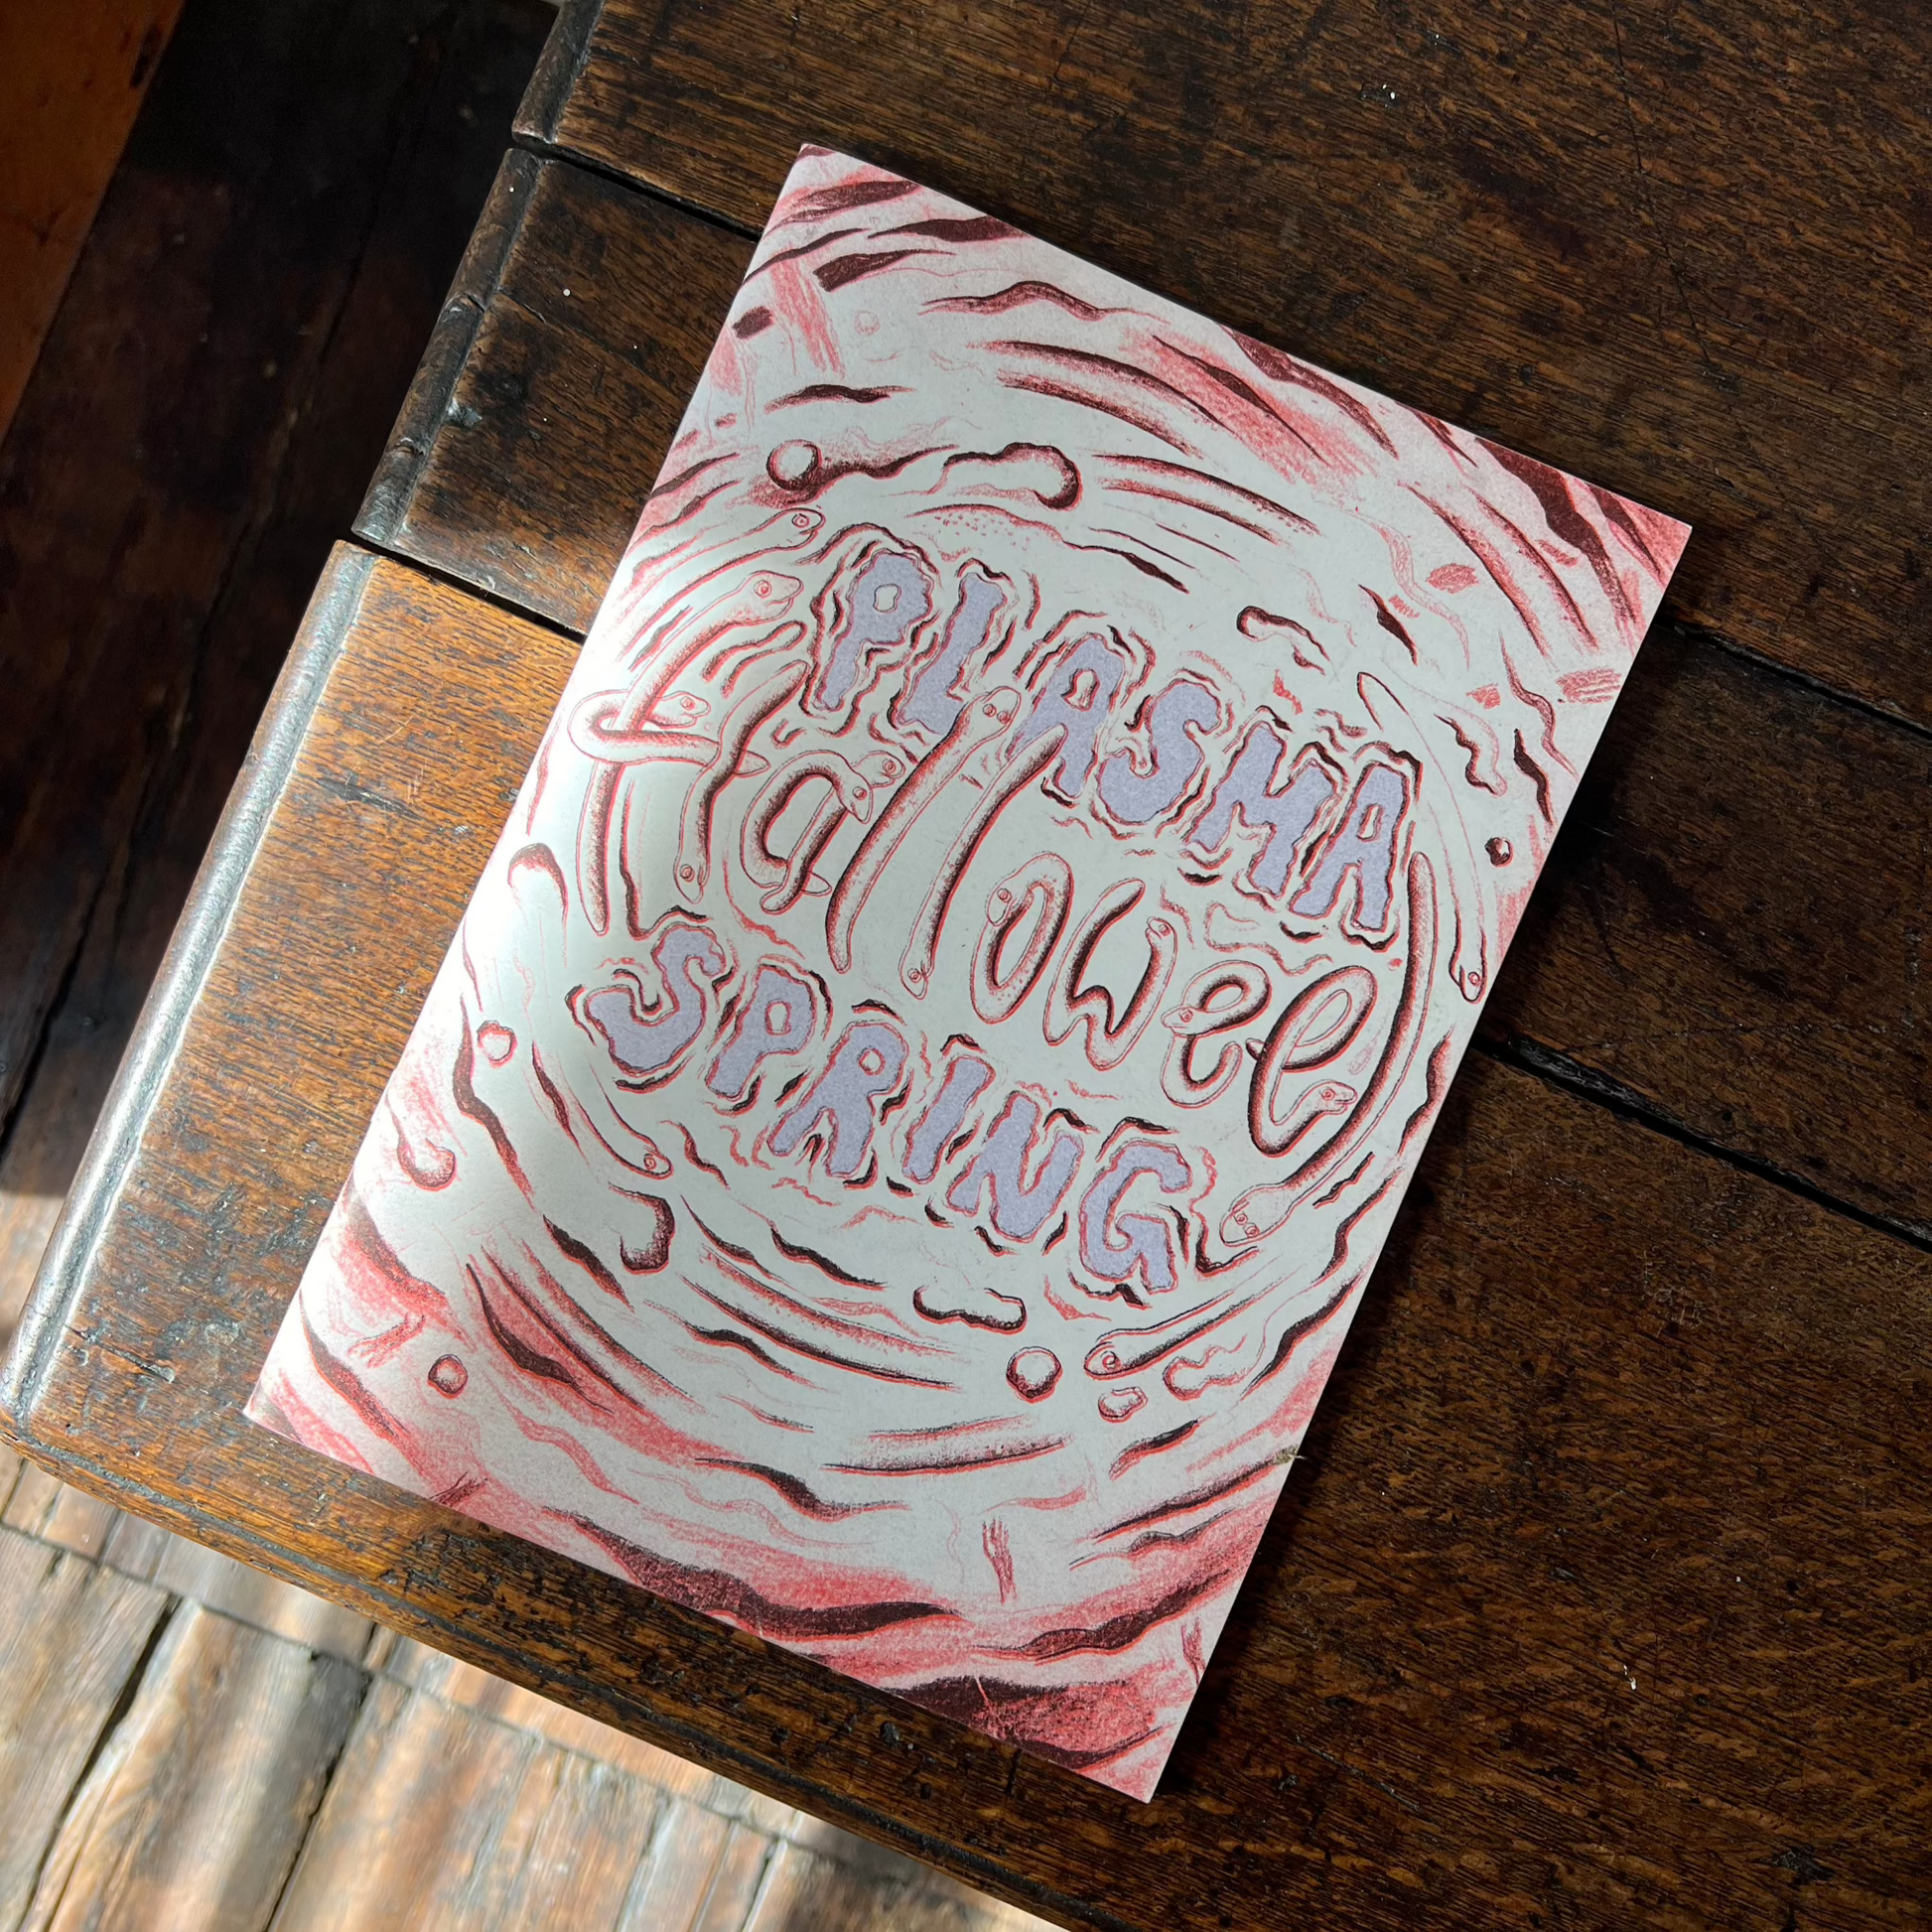 PLASMA
Hallowee
SPRING